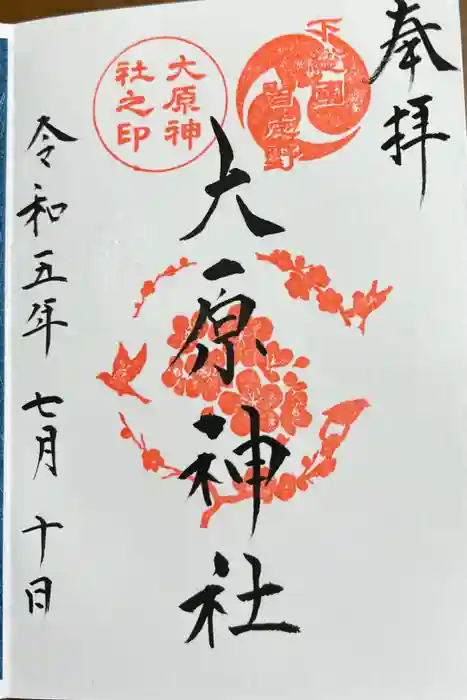 奉拝
下總國
大原神社
大原神
社之印
令和五年 七月 十日